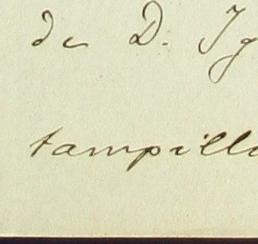 de D. Ig
tampill